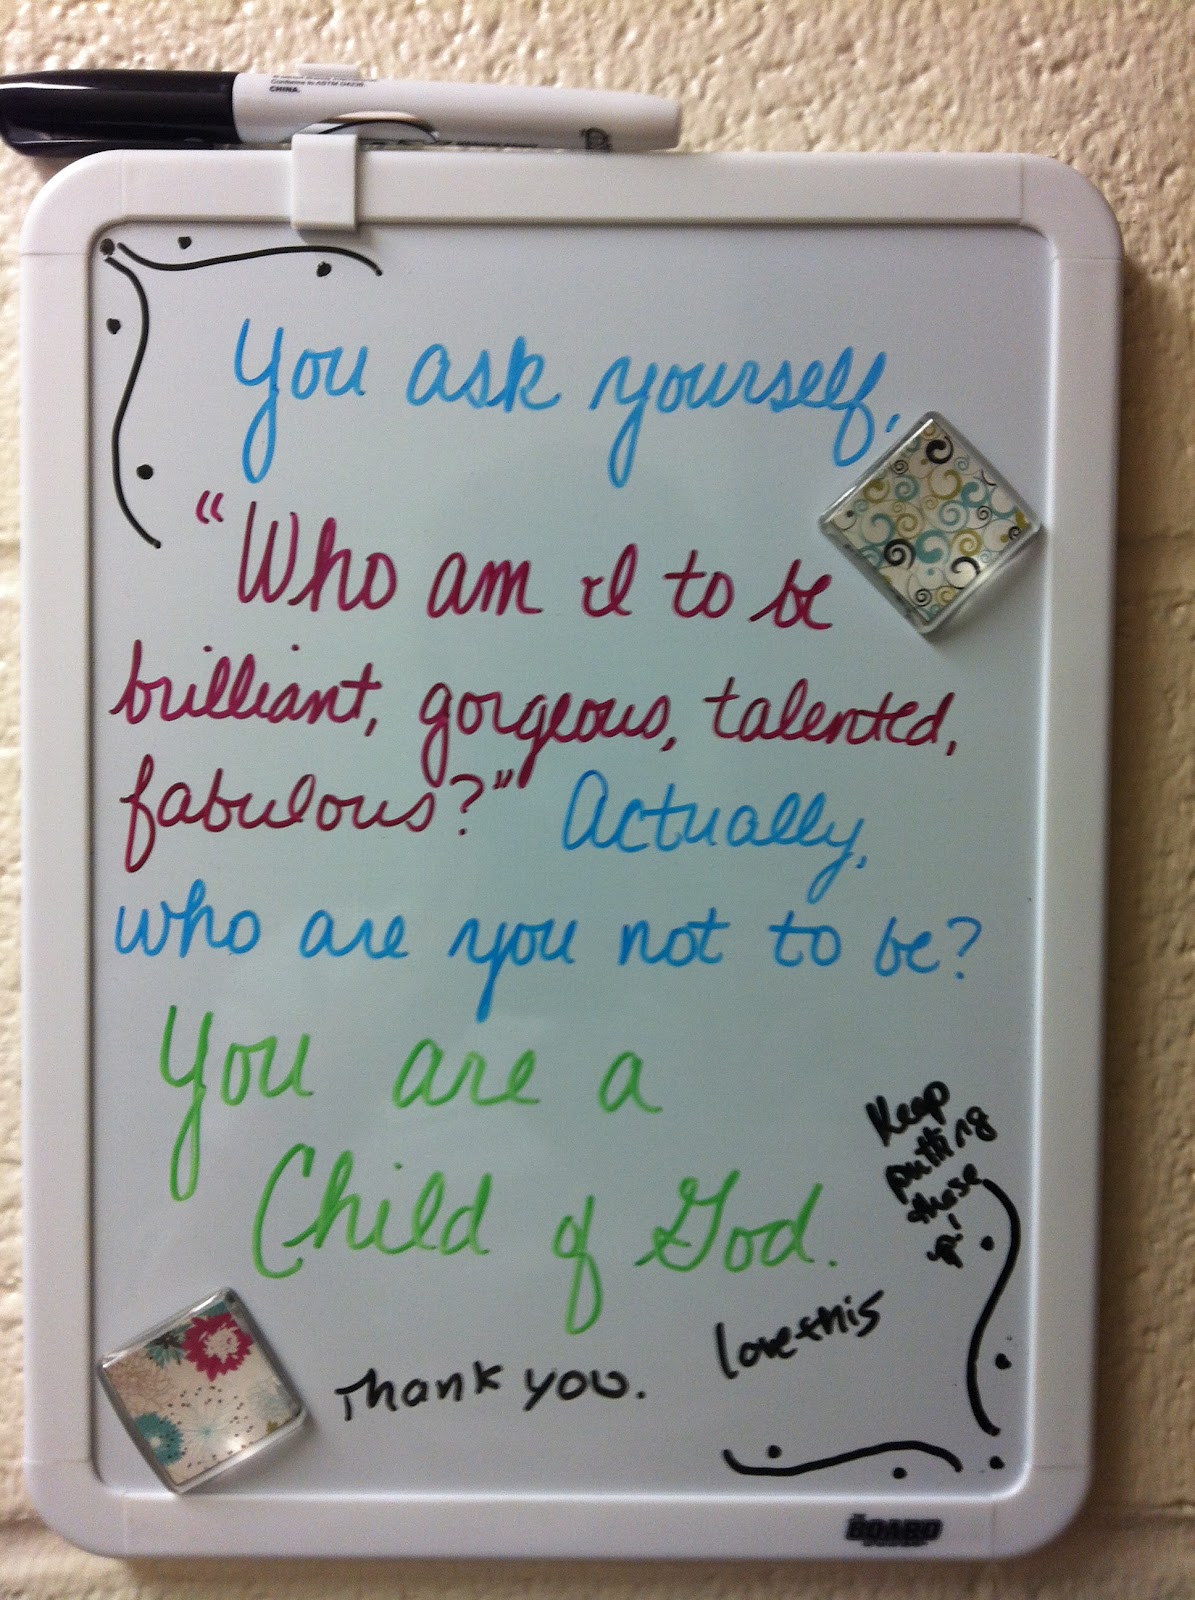 Conforms to ASTM D4236.
CHINA.
You ask yourself,
"Who am I to be
brilliant, gorgeous, talented,
fabulous?" Actually,
who are you not to be?
You are a
Child of God.
Keep
putting
these
up!
love this
Thank you.
THE BOARD